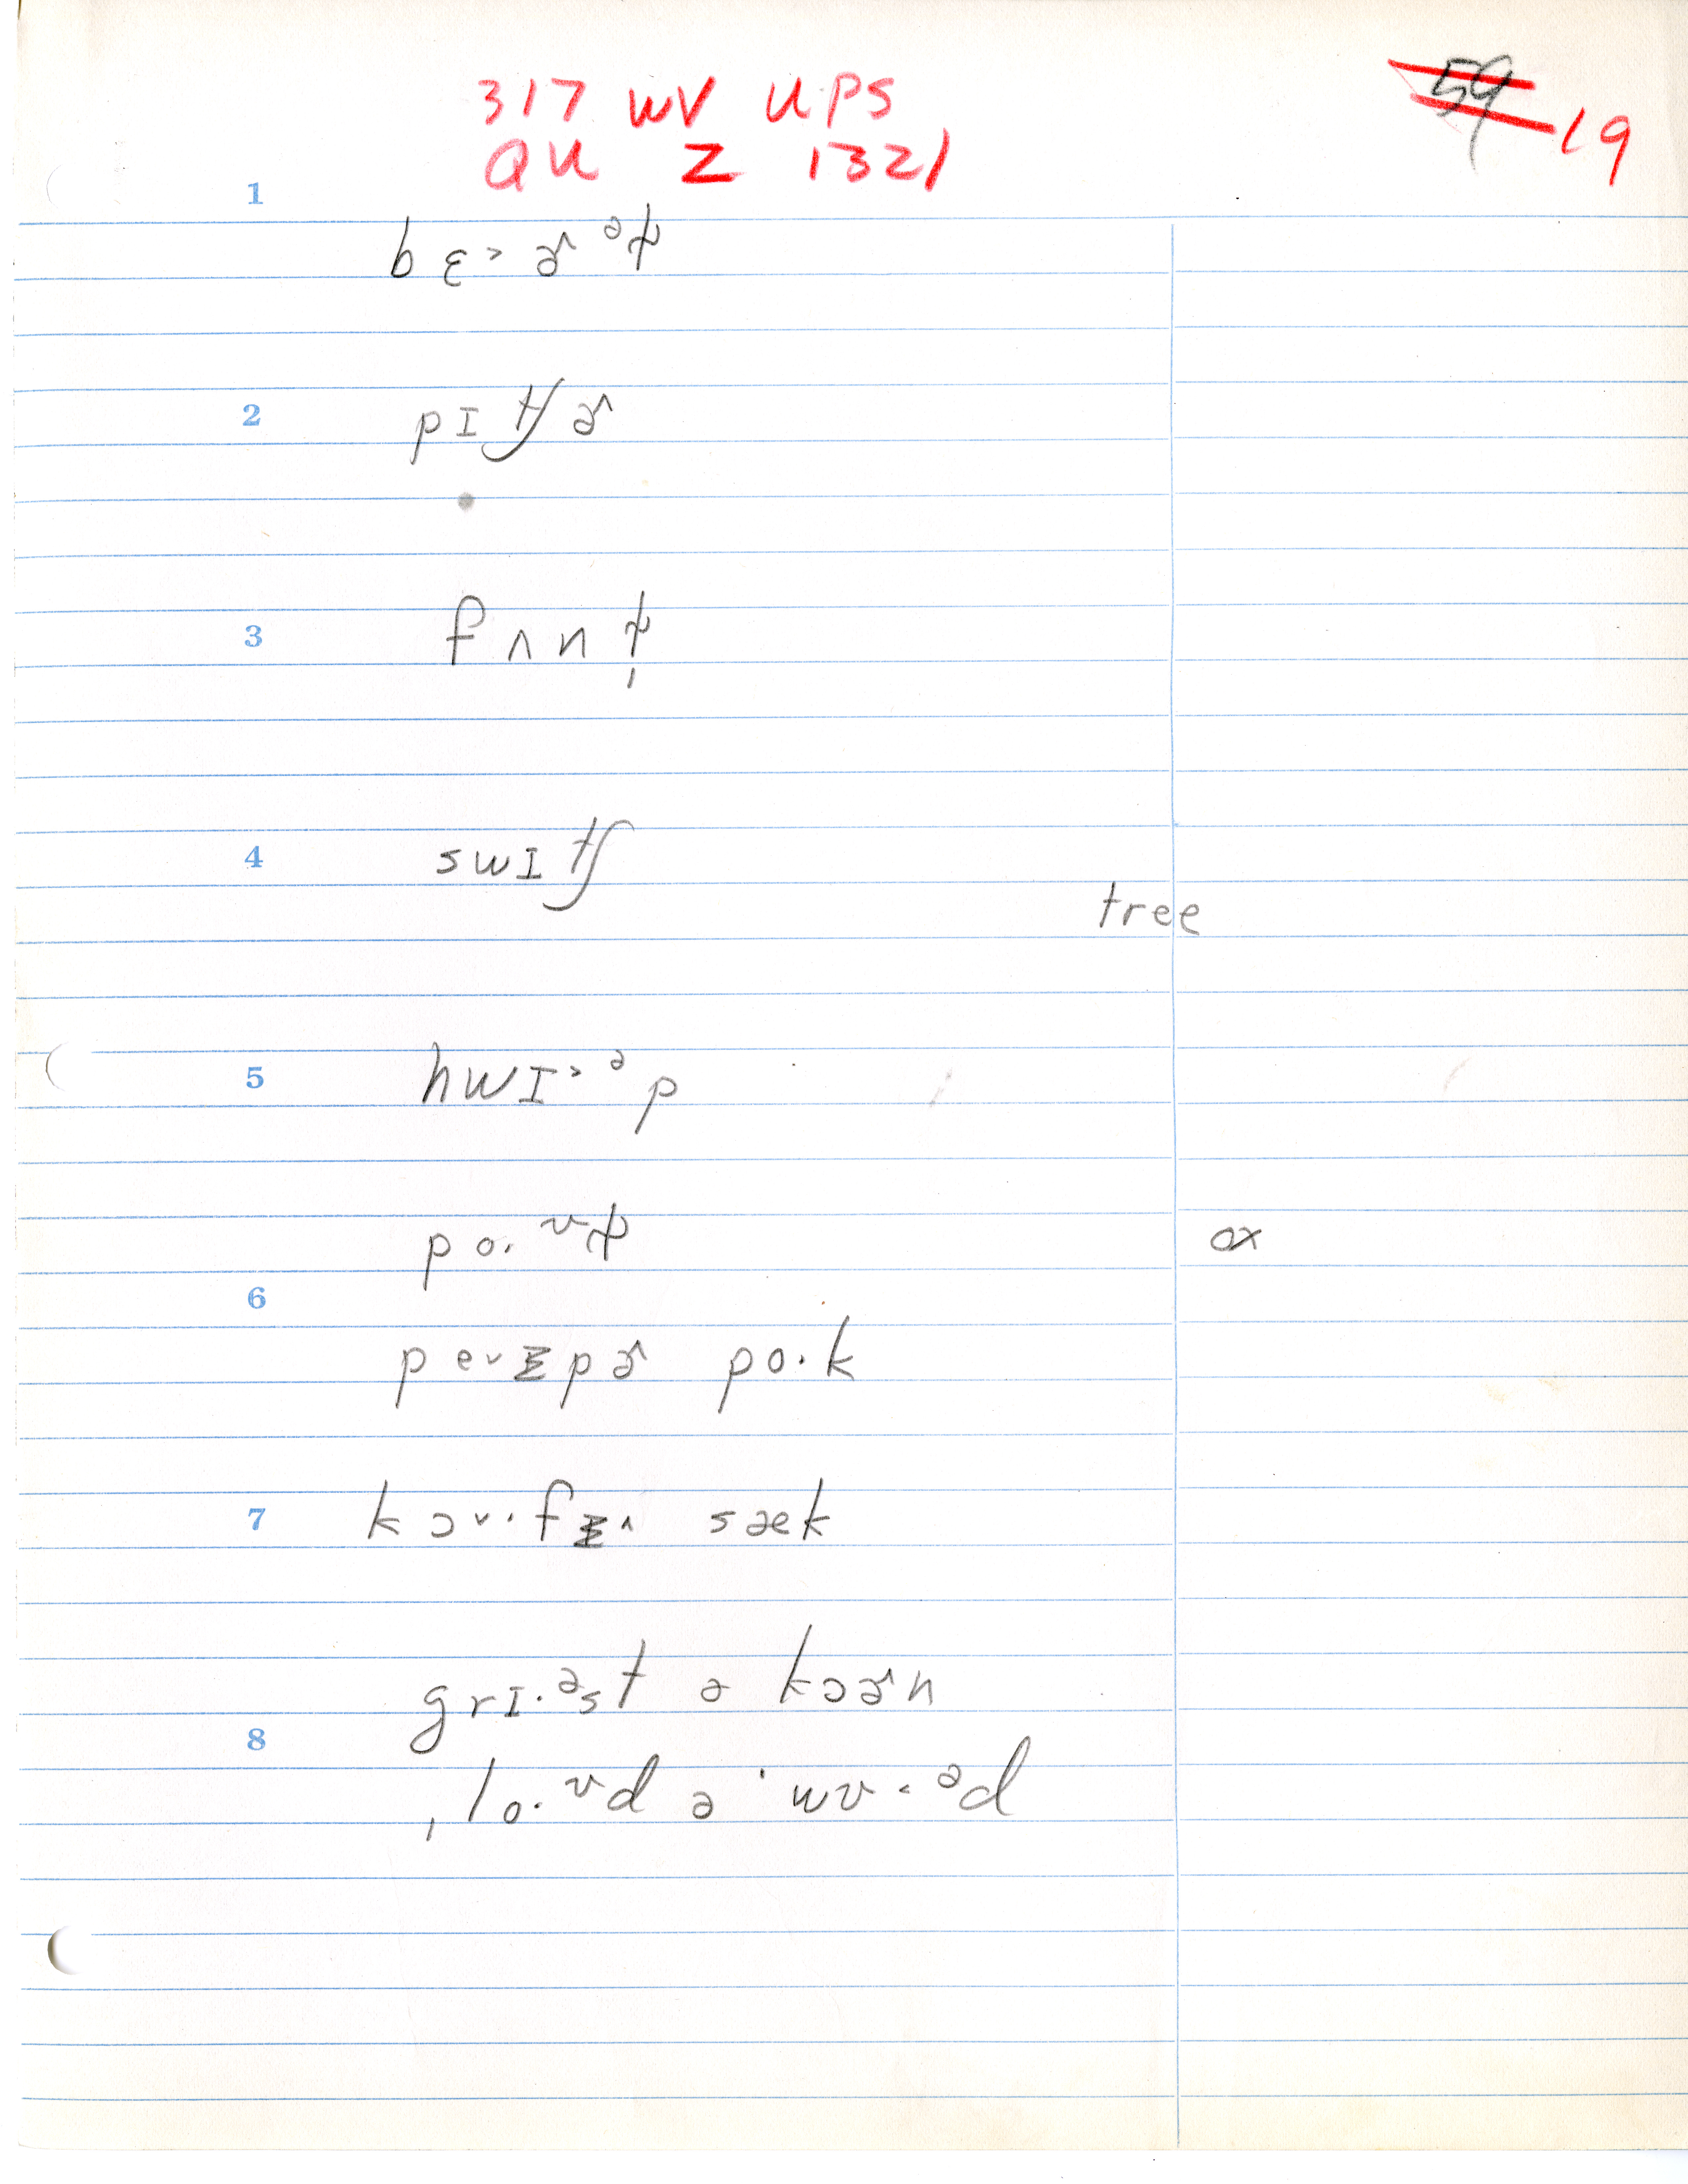 317 WV UPS
QU Z 1321
59 19
1
bɛ˃ɚ ᵊɫ
2
pɪtʃɚ
3
fʌnɫ̩
4
swɪtʃ
tree
5
hwɪ˃ᵊp
po.ᵛɫ
ox
6
pevɪpɚ po.k
7
kɔv.fɪ^ sæk
8
grɪ.ᵊst ə kɔɚn
ˌlo.ᵛd ə ˈwʊ˂ᵊd